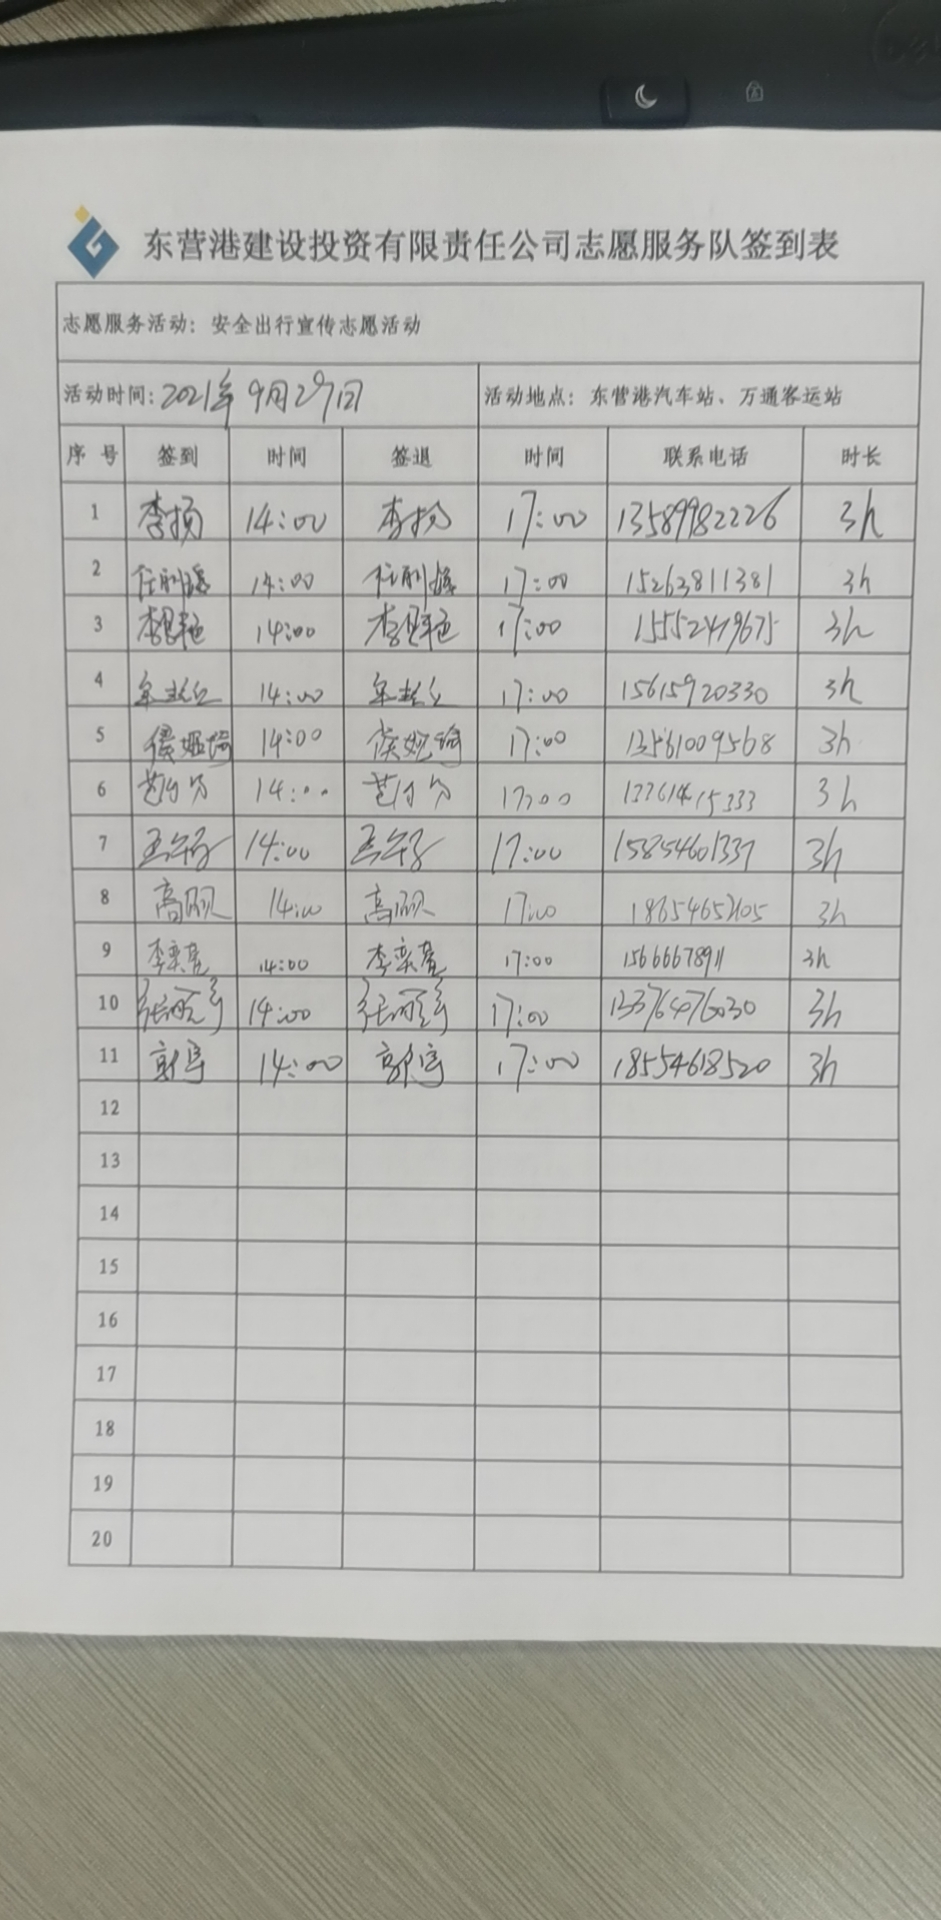 东营港建设投资有限责任公司志愿服务队签到表
志愿服务活动：安全出行宣传志愿活动
活动时间：2021年9月29日 活动地点：东营港汽车站、万通客运站
序号 签到 时间 签退 时间 联系电话 时长
1 李扬 14:00 李扬 17:00 13589982226 3h
2 14:00 17:00 15263811381 3h
3 14:00 17:00 15552479675 3h
4 14:00 17:00 15615920330 3h
5 14:00 17:00 13561009568 3h
6 14:00 17:00 3h
7 14:00 17:00 15854601337 3h
8 高硕 14:00 高硕 17:00 3h
9 14:00 17:00 15666678911 3h
10 14:00 17:00 13376476030 3h
11 郭宇 14:00 郭宇 17:00 18554618520 3h
12
13
14
15
16
17
18
19
20